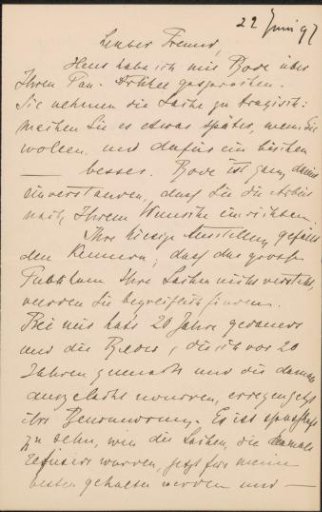 22 Juni 97
Lieber Freund,
Heute habe ich mit Bode über
Ihren Pan-Artikel gesprochen.
Sie nehmen die Sache zu tragisch:
machen Sie es etwas später, wenn Sie
wollen und dafür ein bischen
— besser. Bode ist ganz damit
einverstanden, dass Sie die Arbeit
nach Ihrem Wunsche einrichten.
Ihre hiesige Ausstellung gefällt
den Kennern; dass das grosse
Publikum Ihre Sachen nicht versteht,
werden Sie begreiflich finden.
Bei mir hats 20 Jahre gedauert
und die Bilder, die ich vor 20
Jahren gemalt und die damals
ausgelacht wurden, erregen jetzt
ihre Bewunderung. Es ist spasshaft
zu sehn, wie die Sachen, die damals
refusirt wurden, jetzt für meine
besten gehalten werden und —